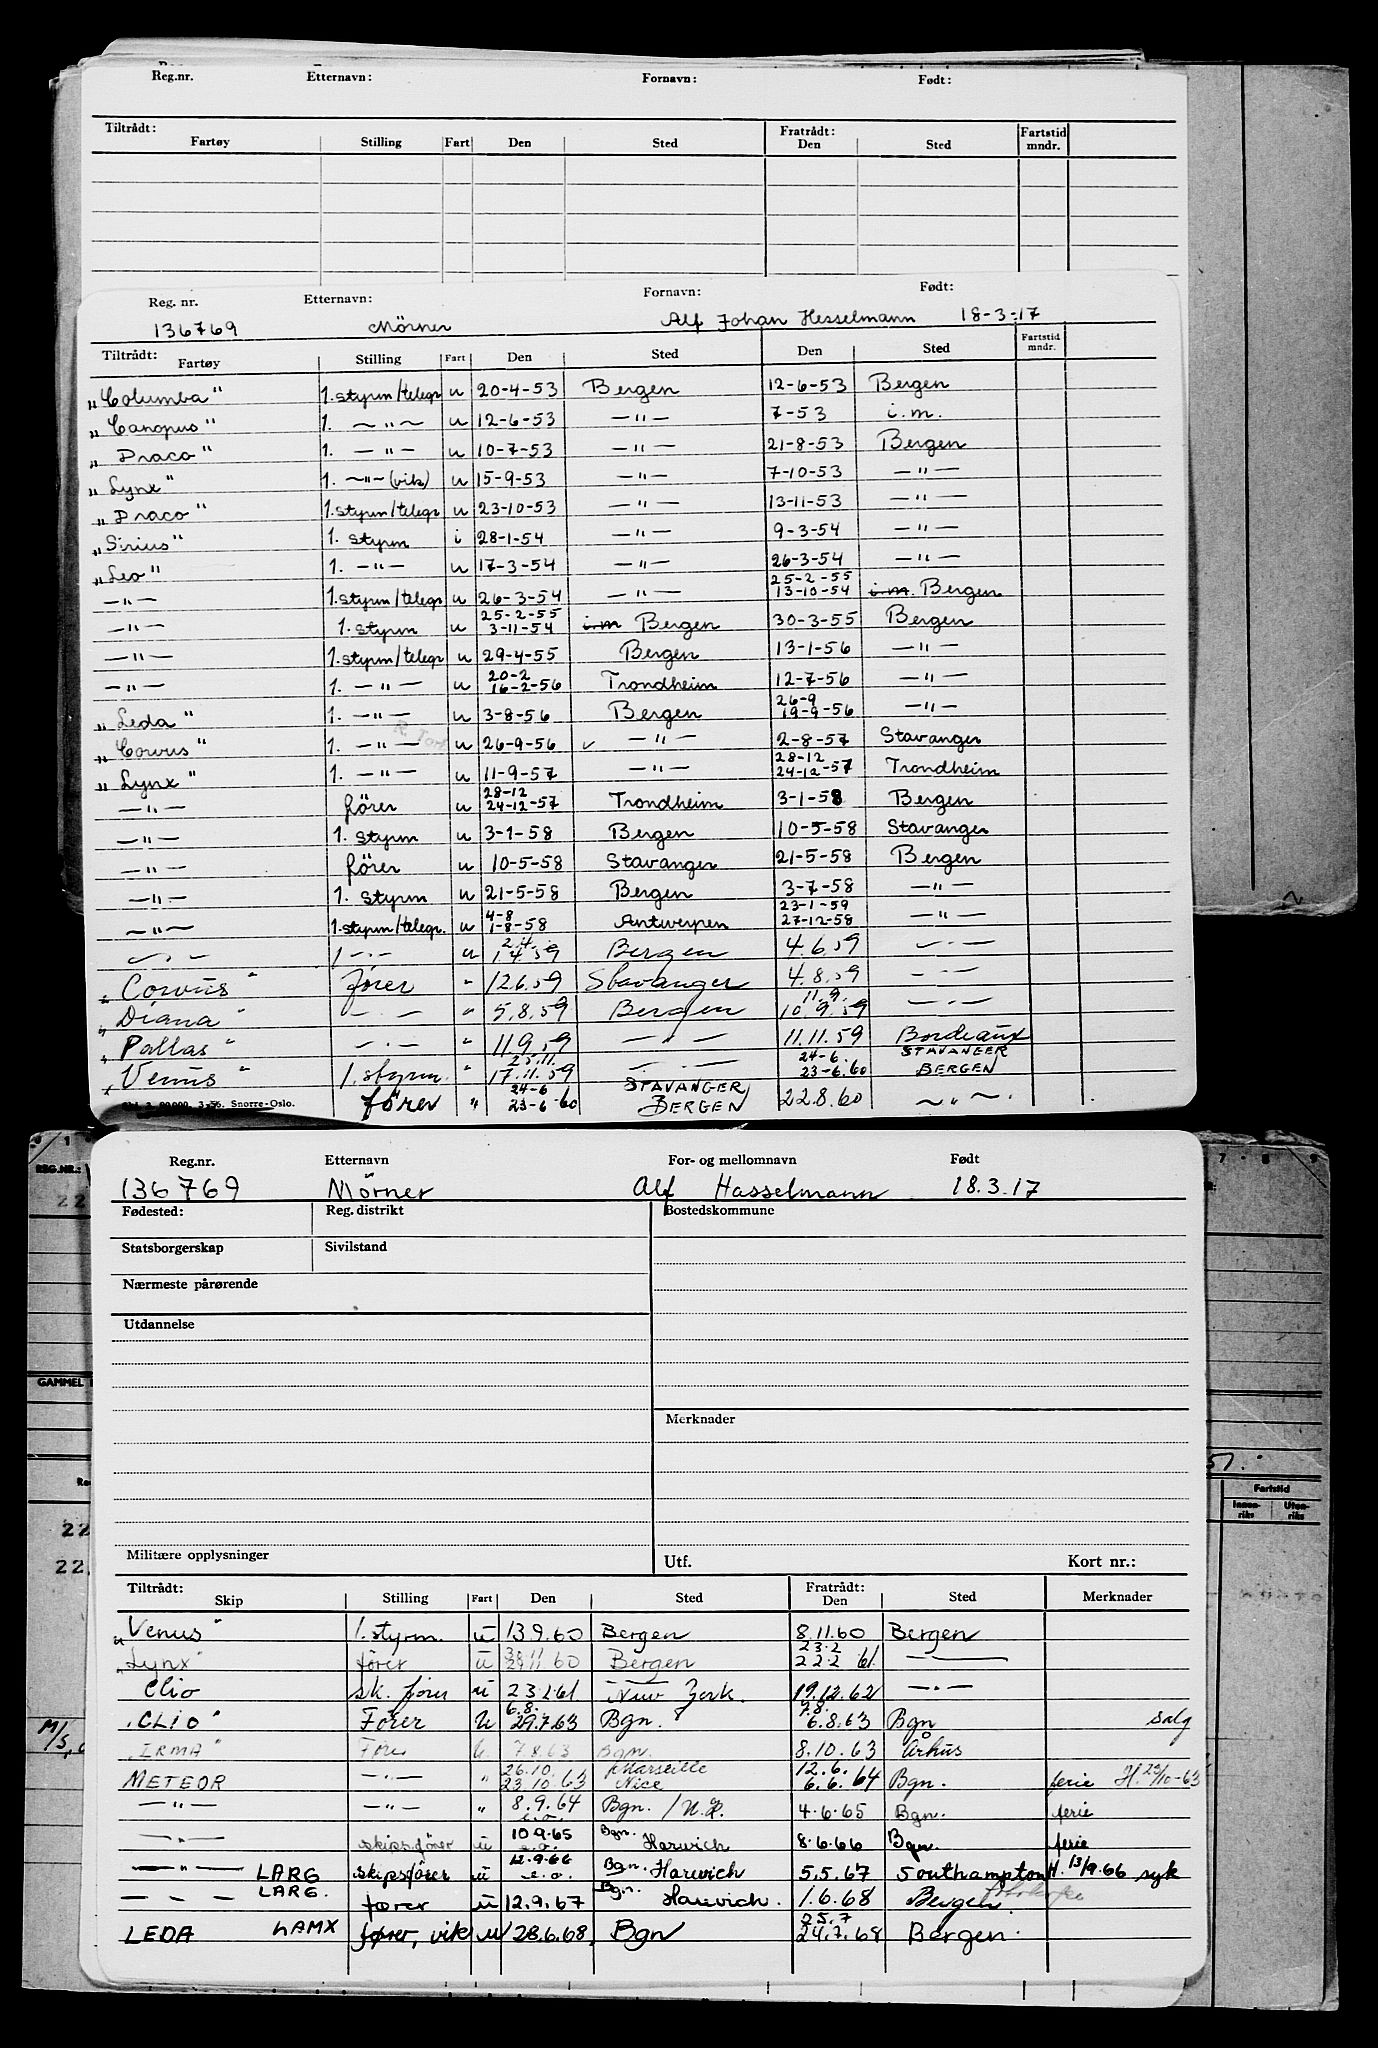 Reg.nr. Etternavn: Fornavn: Født:
Tiltrådt: Fratrådt: Fartstid
Fartøy Stilling Fart Den Sted Den Sted mndr.
Reg. nr. Etternavn: Fornavn: Født:
136769 Mörner Alf Johan Hesselmann 18-3-17
Tiltrådt: Fartstid
Fartøy Stilling Fart Den Sted Den Sted mndr.
„Columba" 1. styrm/telegr u 20-4-53 Bergen 12-6-53 Bergen
„Canopus" 1. —"— u 12-6-53 —"— 7-53 i.m.
„Draco" 1. —"— u 10-7-53 —"— 21-8-53 Bergen
„Lynx" 1. —"— (vik) u 15-9-53 —"— 7-10-53 —"—
„Draco" 1. styrm/telegr u 23-10-53 —"— 13-11-53 —"—
„Sirius" 1. styrm i 28-1-54 —"— 9-3-54 —"—
„Leo" 1. —"— u 17-3-54 —"— 26-3-54 —"—
25-2-55
—"— 1. styrm/telegr u 26-3-54 —"— 13-10-54 i.m. Bergen
25-2-55
—"— 1. styrm u 3-11-54 i.m Bergen 30-3-55 Bergen
—"— 1. styrm/telegr u 29-4-55 Bergen 13-1-56 —"—
20-2
—"— 1. —"— u 16-2-56 Trondheim 12-7-56 —"—
26-9
„Leda" 1. —"— u 3-8-56 Bergen 19-9-56 —"—
„Corvus" 1. —"— u 26-9-56 —"— 2-8-57 Stavanger
28-12
„Lynx" 1. —"— u 11-9-57 —"— 24-12-57 Trondheim
28-12
—"— förer u 24-12-57 Trondheim 3-1-58 Bergen
—"— 1. styrm u 3-1-58 Bergen 10-5-58 Stavanger
—"— förer u 10-5-58 Stavanger 21-5-58 Bergen
—"— 1. styrm u 21-5-58 Bergen 3-7-58 —"—
4-8 23-1-59
—"— 1. styrm/telegr. u 1-8-58 Antwerpen 27-12-58 —"—
2.4.
—"— 1 —"— u 1.4.59 Bergen 4.6.59 —"—
„Corvus" Förer " 12.6.59 Stavanger 4.8.59 —"—
11.9.
„Diana" —"— " 5.8.59 Bergen 10.9.59 —"—
„Pallas" —"— " 11.9.59 —"— 11.11.59 Bordeaux
25.11. 24-6. STAVANGER
„Venus" 1. styrm. " 17.11.59 —"— 23-6.60 BERGEN
24-6 STAVANGER
förer " 23-6-60 BERGEN 22.8.60 —"—
3-56. Snorre-Oslo.
Reg.nr. Etternavn For- og mellomnavn Født
136769 Mörner Alf Hasselmann 18.3.17
Fødested: Reg. distrikt Bostedskommune
REG.NR.:
Statsborgerskap Sivilstand
Nærmeste pårørende
Utdannelse
GAMMEL
Merknader
Fartstid
Innenriks Utenriks
Militære opplysninger Utf. Kort nr.:
Tiltrådt: Fratrådt:
Skip Stilling Fart Den Sted Den Sted Merknader
„Venus" 1. styrm. u 13.9.60 Bergen 8.11.60 Bergen
23.2
„Lynx" förer u 60 Bergen 22.2 61 —"—
Clio sk. förer u 23.2.61 New York. 19.12.62 —"—
6.8. 7.8.
„CLIO" Förer U 29.7.63 Bgn. 6.8.63 Bgn salg
„IRMA" Förer U 7.8.63 Bgn. 8.10.63 Århus
26.10. Marseille 12.6.
METEOR —"— " 23.10.63 Nice 6.6.64 Bgn. ferie H. 23/10-63
—"— —"— " 8.9.64 Bgn. / 4.6.65 Bgn. ferie
—"— skipsfører u 10.9.65 Bgn. Harwich 8.6.66 Bgn. ferie
—"— LARG skipsfører u 12.9.66 e.o. Bgn. Harwich 5.5.67 Southampton H. 13/9.66 syk
—"— LARG. fører u 12.9.67 Bgn. Harwich. 1.6.68 Bergen.
25.7
LEDA LAMX fører, vik u 28.6.68. Bgn 24.7.68 Bergen.